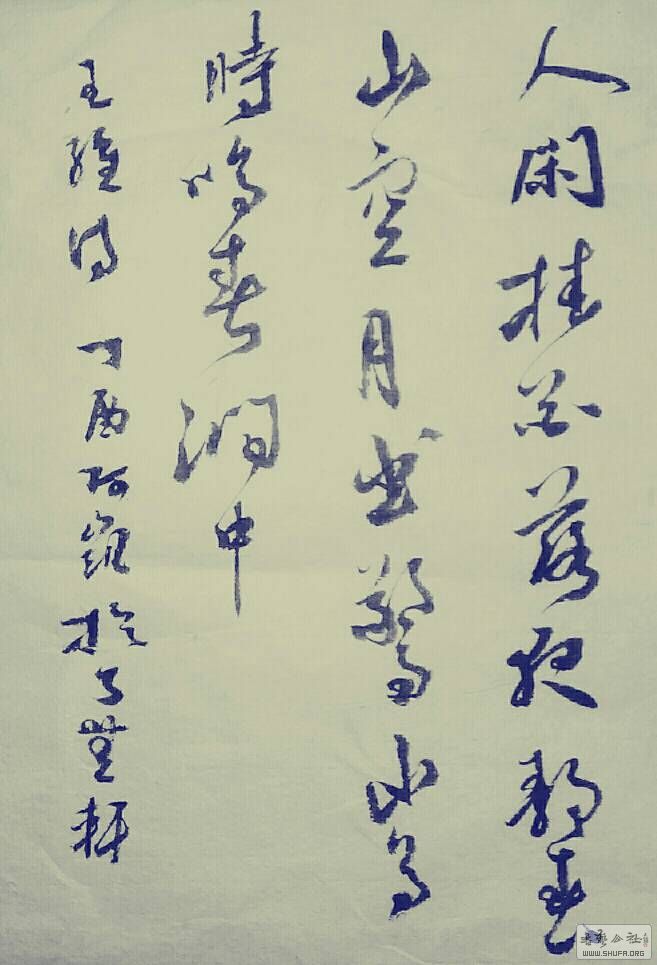 人閑桂花落夜静春
山空月出驚山鳥
時鳴春澗中
王維詩 丁酉阿羅於軒
書藝公社
WWW.SHUFA.ORG